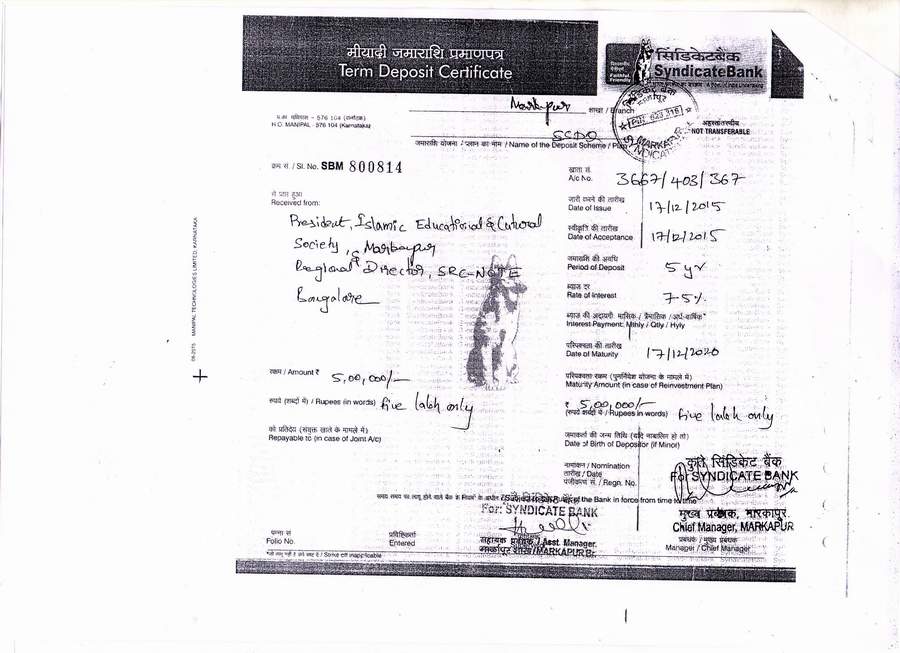 मीयादी जमाराशि प्रमाणपत्र
Term Deposit Certificate
सिंडिकेटबैंक
SyndicateBank
Faithful. Friendly
Markapur शाखा / Branch
H.O. MANIPAL - 576 104 (Karnataka)
SCDQ
जमाराशि योजना / प्लान का नाम / Name of the Deposit Scheme / Plan
अहस्तांतरणीय
NOT TRANSFERABLE
PIN 523 316
MARKAPUR
SYNDICATE
क्रम सं. / Sl. No. SBM 800814
खाता सं.
A/c No. 3667/403/367
से प्राप्त हुआ
Received from:
President, Islamic Educational & Cultural
Society, Markapur
&
Regional Director, SRC-NCTE
Bangalore
जारी करने की तारीख
Date of Issue 17/12/2015
स्वीकृति की तारीख
Date of Acceptance 17/12/2015
जमाराशि की अवधि
Period of Deposit 5 yr
ब्याज दर
Rate of Interest 7.5%
ब्याज की अदायगी मासिक / त्रैमासिक / अर्ध-वार्षिक*
Interest Payment: Mthly / Qtly / Hyly
परिपक्वता की तारीख
Date of Maturity 17/12/2020
रकम / Amount ₹ 5,00,000/-
रुपये (शब्दों में) / Rupees (in words) five lakh only
परिपक्वता रकम (पुनर्निवेश योजना के मामले में)
Maturity Amount (in case of Reinvestment Plan)
₹ 5,00,000/-
(रुपये शब्दों में / Rupees in words) five lakh only
को प्रतिदेय (संयुक्त खाते के मामले में)
Repayable to (in case of Joint A/c)
जमाकर्ता की जन्म तिथि (यदि नाबालिग हो तो)
Date of Birth of Depositor (if Minor)
नामांकन / Nomination
तारीख / Date
पंजीकरण सं. / Regn. No.
कृते सिंडिकेट बैंक
For SYNDICATE BANK
समय समय पर लागू होने वाले बैंक के नियमों के अधीन / of the Bank in force from time to time
For: SYNDICATE BANK
मुख्य प्रबंधक, मारकापुर
Chief Manager, MARKAPUR
प्रबंधक / मुख्य प्रबंधक
Manager / Chief Manager
सहायक प्रबंधक / Asst. Manager.
मारकापुर शाखा / MARKAPUR Br.
पन्ना सं
Folio No.
प्रविष्टिकर्ता
Entered
*जो लागू नहीं है उसे काट दें / Strike off inapplicable
MANIPAL TECHNOLOGIES LIMITED, KARNATAKA